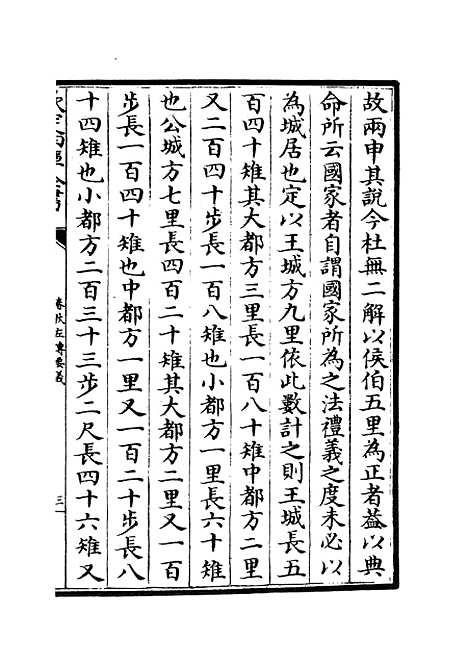 故兩申其説今杜無二解以侯伯五里為正者葢以典
命所云國家者自謂國家所為之法禮義之度未必以
為城居也定以王城方九里依此數計之則王城長五
百四十雉其大都方三里長一百八十雉中都方二里
又二百四十步長一百八雉也小都方一里長六十雉
也公城方七里長四百二十雉其大都方二里又一百
步長一百四十雉也中都方一里又一百二十步長八
十四雉也小都方二百三十三步二尺長四十六雉又
春秋左傳要義
三